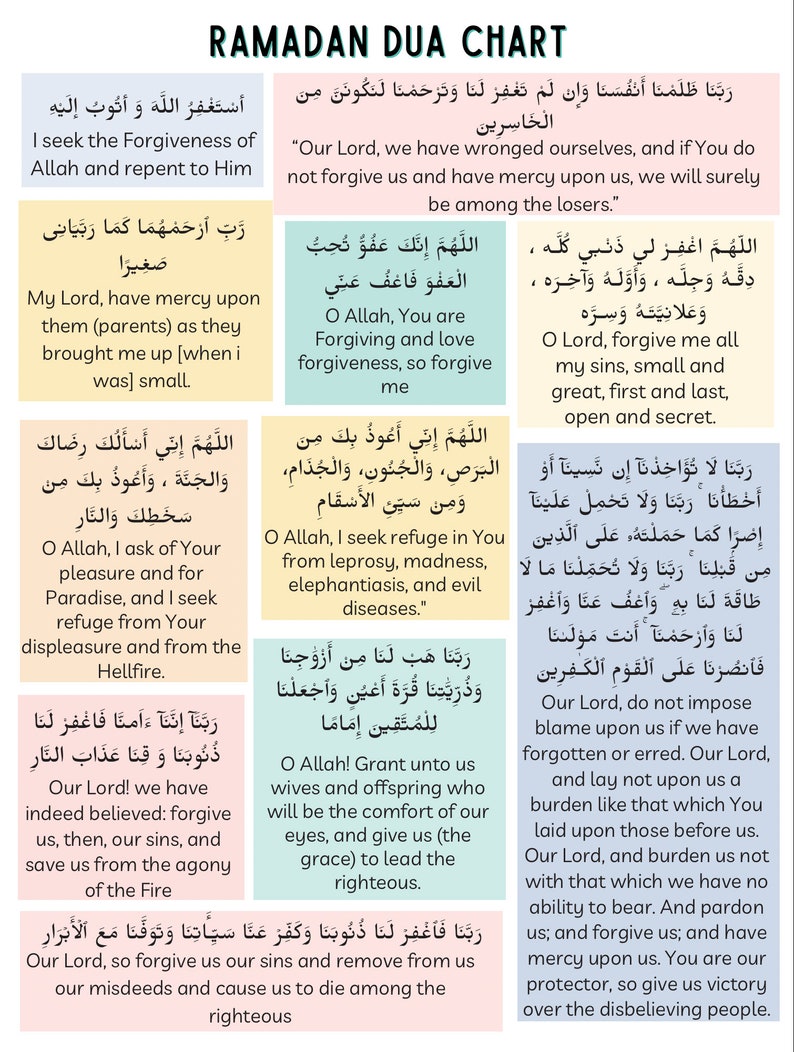 RAMADAN DUA CHART
أسْتَغْفِرُ اللَّهَ وَ أتُوبُ إلَيْهِ
I seek the Forgiveness of
Allah and repent to Him
رَبَّنَا ظَلَمْنَا أَنْفُسَنَا وَإِن لَمْ تَغْفِرْ لَنَا وَتَرْحَمْنَا لَنَكُونَنَ مِنَ
الْخَاسِرِينَ
“Our Lord, we have wronged ourselves, and if You do
not forgive us and have mercy upon us, we will surely
be among the losers.”
رَّبِّ ٱرْحَمْهُمَا كَمَا رَبَّيَانِى
صَغِيرًا
My Lord, have mercy upon
them (parents) as they
brought me up [when i
was] small.
اللَّهُمَّ إِنَّكَ عَفُوٌّ تُحِبُّ
الْعَفْوَ فَاعْفُ عَنِّي
O Allah, You are
Forgiving and love
forgiveness, so forgive
me
اللّهُـمَّ اغْفِـرْ لي ذَنْـبي كُلَّـه ،
دِقَّـهُ وَجِلَّـه ، وَأَوَّلَـهُ وَآخِـرَه ،
وَعَلانِيَّتَـهُ وَسِـرَّه
O Lord, forgive me all
my sins, small and
great, first and last,
open and secret.
اللَّهُمَّ إِنِّي أَسْأَلُكَ رِضَاكَ
وَالجَنَّةَ ، وَأَعُوذُ بِكَ مِن
سَخَطِكَ وَالنَّارِ
O Allah, I ask of Your
pleasure and for
Paradise, and I seek
refuge from Your
displeasure and from the
Hellfire.
اللَّهُمَّ إِنِّي أَعُوذُ بِكَ مِنَ
الْبَرَصِ، وَالْجُنُونِ، وَالْجُذَامِ،
وَمِنْ سَيِّئِ الأَسْقَامِ
O Allah, I seek refuge in You
from leprosy, madness,
elephantiasis, and evil
diseases."
رَبَّنَا لَا تُؤَاخِذْنَآ إِن نَّسِينَآ أَوْ
أَخْطَأْنَا ۚ رَبَّنَا وَلَا تَحْمِلْ عَلَيْنَآ
إِصْرًا كَمَا حَمَلْتَهُۥ عَلَى ٱلَّذِينَ
مِن قَبْلِنَا ۚ رَبَّنَا وَلَا تُحَمِّلْنَا مَا لَا
طَاقَةَ لَنَا بِهِۦ ۖ وَٱعْفُ عَنَّا وَٱغْفِرْ
لَنَا وَٱرْحَمْنَآ ۚ أَنتَ مَوْلَىٰنَا
فَٱنصُرْنَا عَلَى ٱلْقَوْمِ ٱلْكَـٰفِرِينَ
Our Lord, do not impose
blame upon us if we have
forgotten or erred. Our Lord,
and lay not upon us a
burden like that which You
laid upon those before us.
Our Lord, and burden us not
with that which we have no
ability to bear. And pardon
us; and forgive us; and have
mercy upon us. You are our
protector, so give us victory
over the disbelieving people.
رَبَّنَا هَبْ لَنَا مِن أَزْوَٰجِنَا
وَذُرِّيَّـٰتِنَا قُرَّةَ أَعْيُنٍ وَٱجْعَلْنَا
لِلْمُتَّقِينَ إِمَامًا
O Allah! Grant unto us
wives and offspring who
will be the comfort of our
eyes, and give us (the
grace) to lead the
righteous.
رَبَّنَآ إِنَّنَآ ءَامَنَّا فَاغْفِرْ لَنَا
ذُنُوبَنَا وَ قِنَا عَذَابَ النَّارِ
Our Lord! we have
indeed believed: forgive
us, then, our sins, and
save us from the agony
of the Fire
رَبَّنَا فَٱغْفِرْ لَنَا ذُنُوبَنَا وَكَفِّرْ عَنَّا سَيِّـَٔاتِنَا وَتَوَفَّنَا مَعَ ٱلْأَبْرَارِ
Our Lord, so forgive us our sins and remove from us
our misdeeds and cause us to die among the
righteous